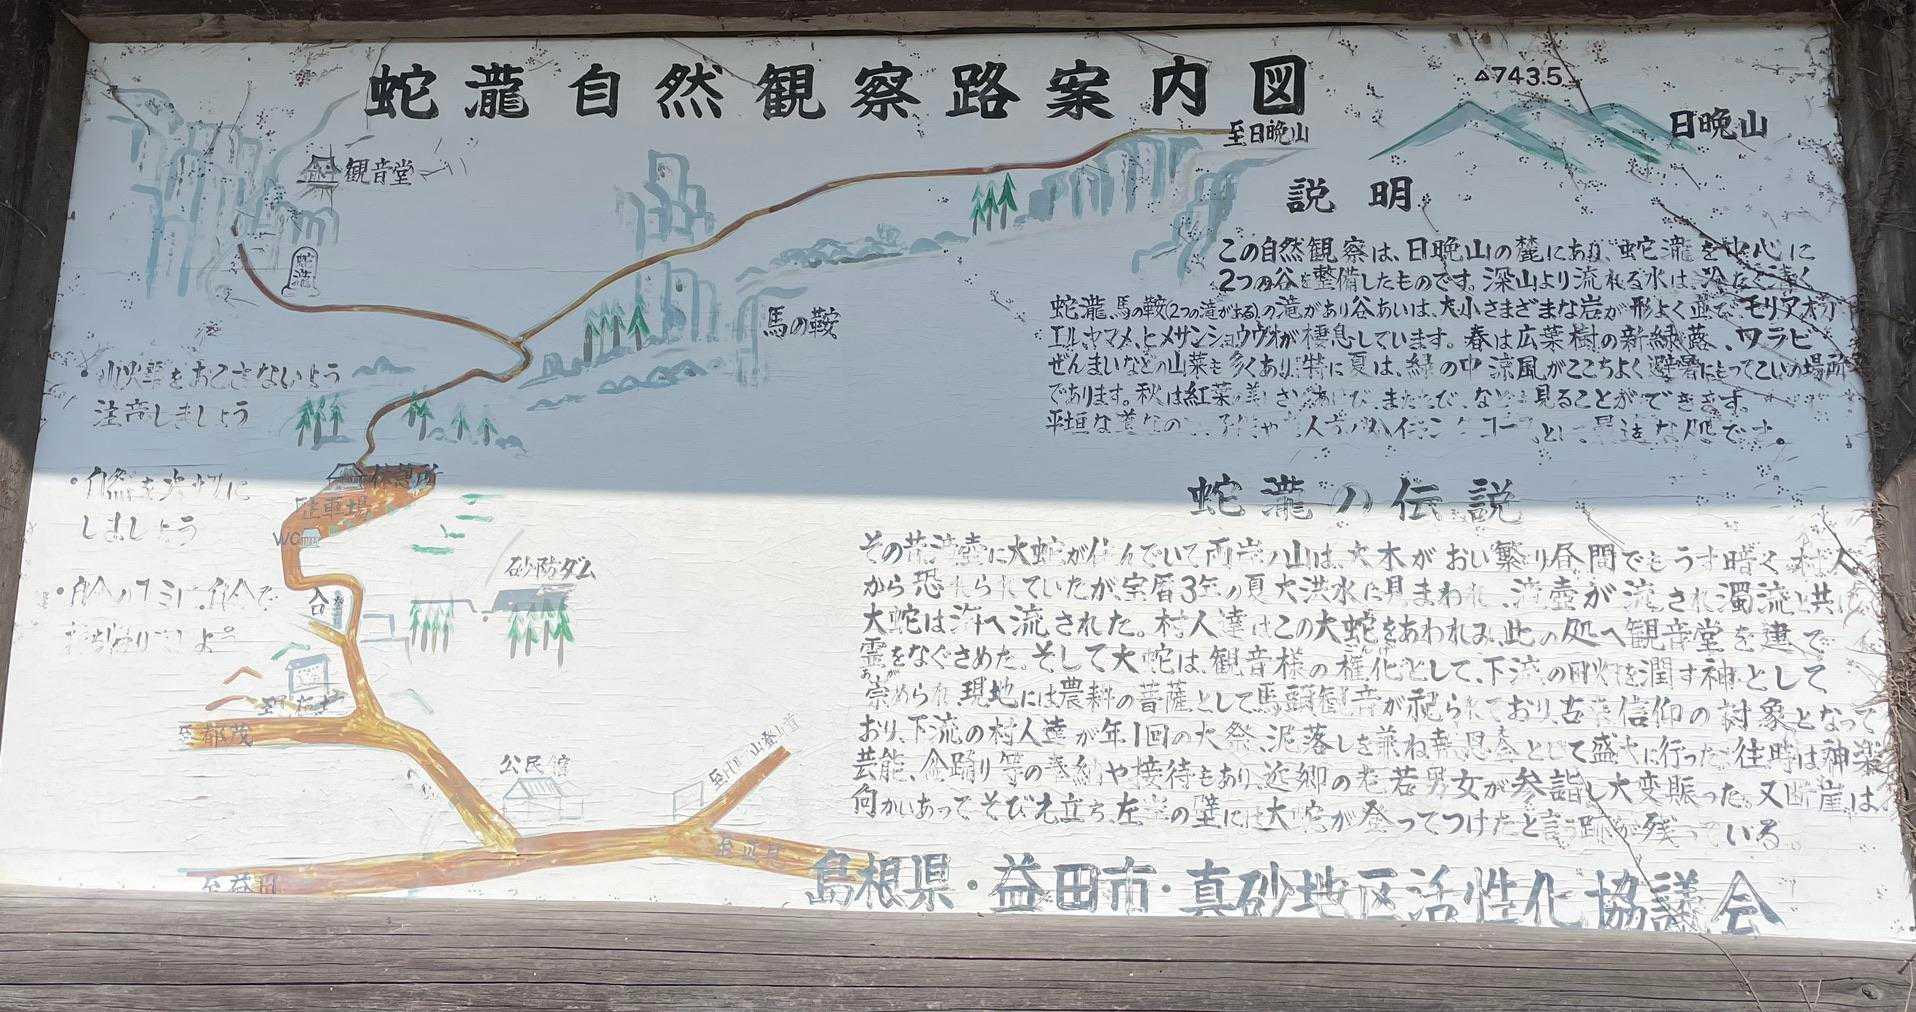 蛇瀧自然観察路案内図
△743.5
日晩山
至日晩山
観音堂
蛇瀧
馬の鞍
説明
この自然観察は、日晩山の麓にあり、蛇瀧を中心に
2つの谷を整備したものです。深山より流れる水は、冷たく清く
蛇瀧、馬の鞍(2つの滝がある)の滝があり谷あいは、大小さまざまな岩が形よく並で、モリアオガ
エル、ヤマメ、ヒメサンショウウオが棲息しています。春は広葉樹の新緑、蕗、ワラビ
ぜんまいなどの山菜も多くあり、特に夏は、緑の中涼風がここちよく避暑にもってこいの場所
であります。秋は紅葉の美しさ、あけび、またたび、なども見ることができます。
平垣な道なの ハイキングコースとし 最適な処です。
・山火事をおこさないよう
注意しましょう
・自然を大切に
しましょう
・自分のゴミは自分で
休憩所
駐車場
WC
砂防ダム
至都茂
公民館
至益田
蛇瀧の伝説
その昔、滝壺に大蛇が住んでいて両岸の山は、大木がおい繁り昼間でもうす暗く村人
から恐れられていたが、宝暦3年の夏大洪水に見まわれ、滝壺が流され濁流と共に
大蛇は海へ流された。村人達はこの大蛇をあわれみ、此の処へ観音堂を建て
霊をなぐさめた。そして大蛇は、観音様の権化として、下流の田畑を潤す神として
崇められ、現地には農耕の菩薩として馬頭観音が祀られており、古来信仰の対象となって
おり、下流の村人達が年1回の大祭、泥落しを兼ね 盛大に行った。往時は神楽
芸能、盆踊り等の奉納や接待もあり、近郷の老若男女が参詣し大変賑った。又断崖は
向かいあってそびえ立ち、左 の壁には大蛇が登ってつけたと言う跡が残っている。
島根県・益田市・真砂地区活性化協議会